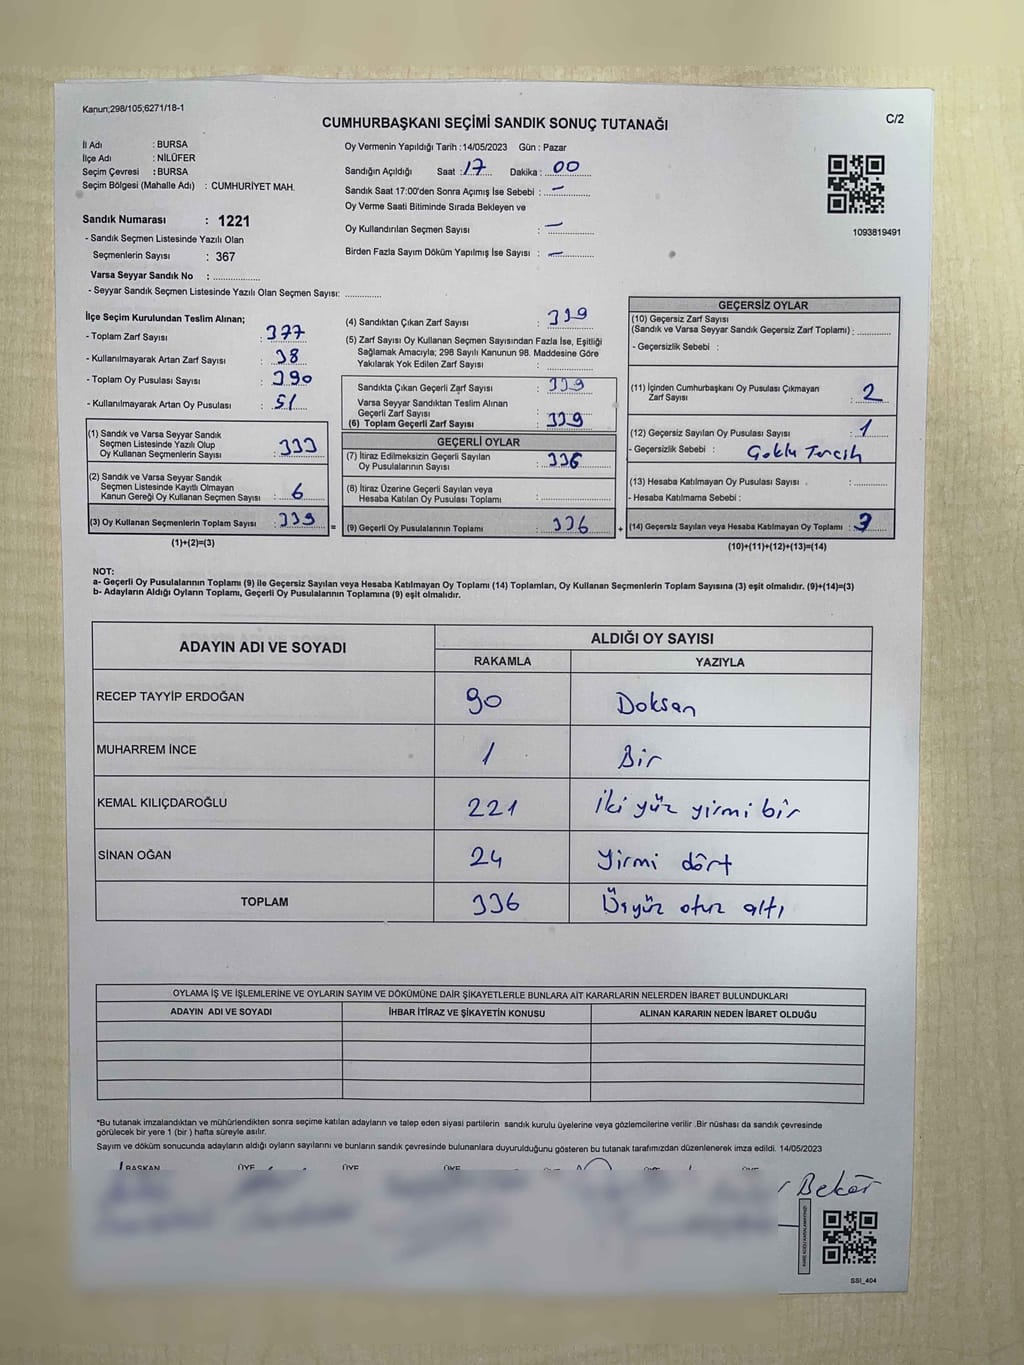 Kanun;298/105;6271/18-1
CUMHURBAŞKANI SEÇİMİ SANDIK SONUÇ TUTANAĞI
C/2
İl Adı : BURSA
İlçe Adı : NİLÜFER
Seçim Çevresi : BURSA
Seçim Bölgesi (Mahalle Adı) : CUMHURİYET MAH.
Sandık Numarası : 1221
- Sandık Seçmen Listesinde Yazılı Olan
Seçmenlerin Sayısı : 367
Varsa Seyyar Sandık No : ..............
- Seyyar Sandık Seçmen Listesinde Yazılı Olan Seçmen Sayısı: ............
Oy Vermenin Yapıldığı Tarih :14/05/2023 Gün : Pazar
Sandığın Açıldığı Saat : 17 Dakika : 00
Sandık Saat 17:00'den Sonra Açımış İse Sebebi : —
Oy Verme Saati Bitiminde Sırada Bekleyen ve
Oy Kullandırılan Seçmen Sayısı : —
Birden Fazla Sayım Döküm Yapılmış İse Sayısı : —
1093819491
İlçe Seçim Kurulundan Teslim Alınan;
- Toplam Zarf Sayısı : 377
- Kullanılmayarak Artan Zarf Sayısı : 38
- Toplam Oy Pusulası Sayısı : 390
- Kullanılmayarak Artan Oy Pusulası : 51
(1) Sandık ve Varsa Seyyar Sandık
Seçmen Listesinde Yazılı Olup
Oy Kullanan Seçmenlerin Sayısı : 333
(2) Sandık ve Varsa Seyyar Sandık
Seçmen Listesinde Kayıtlı Olmayan
Kanun Gereği Oy Kullanan Seçmen Sayısı : 6
(3) Oy Kullanan Seçmenlerin Toplam Sayısı : 339 =
(1)+(2)=(3)
(4) Sandıktan Çıkan Zarf Sayısı : 339
(5) Zarf Sayısı Oy Kullanan Seçmen Sayısından Fazla İse, Eşitliği
Sağlamak Amacıyla; 298 Sayılı Kanunun 98. Maddesine Göre
Yakılarak Yok Edilen Zarf Sayısı : ............
Sandıkta Çıkan Geçerli Zarf Sayısı : 339
Varsa Seyyar Sandıktan Teslim Alınan
Geçerli Zarf Sayısı :
(6) Toplam Geçerli Zarf Sayısı : 339
GEÇERLİ OYLAR
(7) İtiraz Edilmeksizin Geçerli Sayılan
Oy Pusulalarının Sayısı : 336
(8) İtiraz Üzerine Geçerli Sayılan veya
Hesaba Katılan Oy Pusulası Toplamı : ............
(9) Geçerli Oy Pusulalarının Toplamı : 336 +
GEÇERSİZ OYLAR
(10) Geçersiz Zarf Sayısı
(Sandık ve Varsa Seyyar Sandık Geçersiz Zarf Toplamı) : .........
- Geçersizlik Sebebi :
(11) İçinden Cumhurbaşkanı Oy Pusulası Çıkmayan
Zarf Sayısı : 2
(12) Geçersiz Sayılan Oy Pusulası Sayısı : 1
- Geçersizlik Sebebi : Çoklu Tercih
(13) Hesaba Katılmayan Oy Pusulası Sayısı : .........
- Hesaba Katılmama Sebebi :
(14) Geçersiz Sayılan veya Hesaba Katılmayan Oy Toplamı : 3
(10)+(11)+(12)+(13)=(14)
NOT:
a- Geçerli Oy Pusulalarının Toplamı (9) ile Geçersiz Sayılan veya Hesaba Katılmayan Oy Toplamı (14) Toplamları, Oy Kullanan Seçmenlerin Toplam Sayısına (3) eşit olmalıdır. (9)+(14)=(3)
b- Adayların Aldığı Oyların Toplamı, Geçerli Oy Pusulalarının Toplamına (9) eşit olmalıdır.
ADAYIN ADI VE SOYADI
ALDIĞI OY SAYISI
RAKAMLA YAZIYLA
RECEP TAYYİP ERDOĞAN 90 Doksan
MUHARREM İNCE 1 Bir
KEMAL KILIÇDAROĞLU 221 iki yüz yirmi bir
SİNAN OĞAN 24 Yirmi dört
TOPLAM 336 Üçyüz otuz altı
OYLAMA İŞ VE İŞLEMLERİNE VE OYLARIN SAYIM VE DÖKÜMÜNE DAİR ŞİKAYETLERLE BUNLARA AİT KARARLARIN NELERDEN İBARET BULUNDUKLARI
ADAYIN ADI VE SOYADI İHBAR İTİRAZ VE ŞİKAYETİN KONUSU ALINAN KARARIN NEDEN İBARET OLDUĞU
*Bu tutanak imzalandıktan ve mühürlendikten sonra seçime katılan adayların ve talep eden siyasi partilerin sandık kurulu üyelerine veya gözlemcilerine verilir .Bir nüshası da sandık çevresinde
görülecek bir yere 1 (bir ) hafta süreyle asılır.
Sayım ve döküm sonucunda adayların aldığı oyların sayılarını ve bunların sandık çevresinde bulunanlara duyurulduğunu gösteren bu tutanak tarafımızdan düzenlenerek imza edildi. 14/05/2023
BAŞKAN ÜYE ÜYE ÜYE
Bekâr
SSI_404